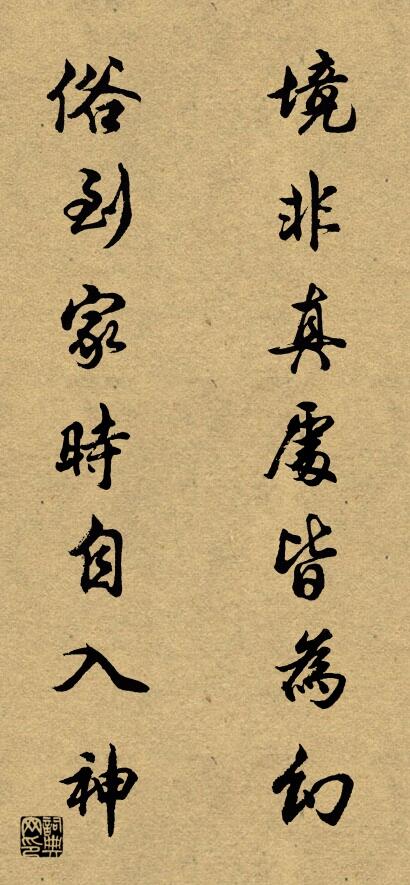 境非真處皆為幻
俗到家時自入神
詞典網印